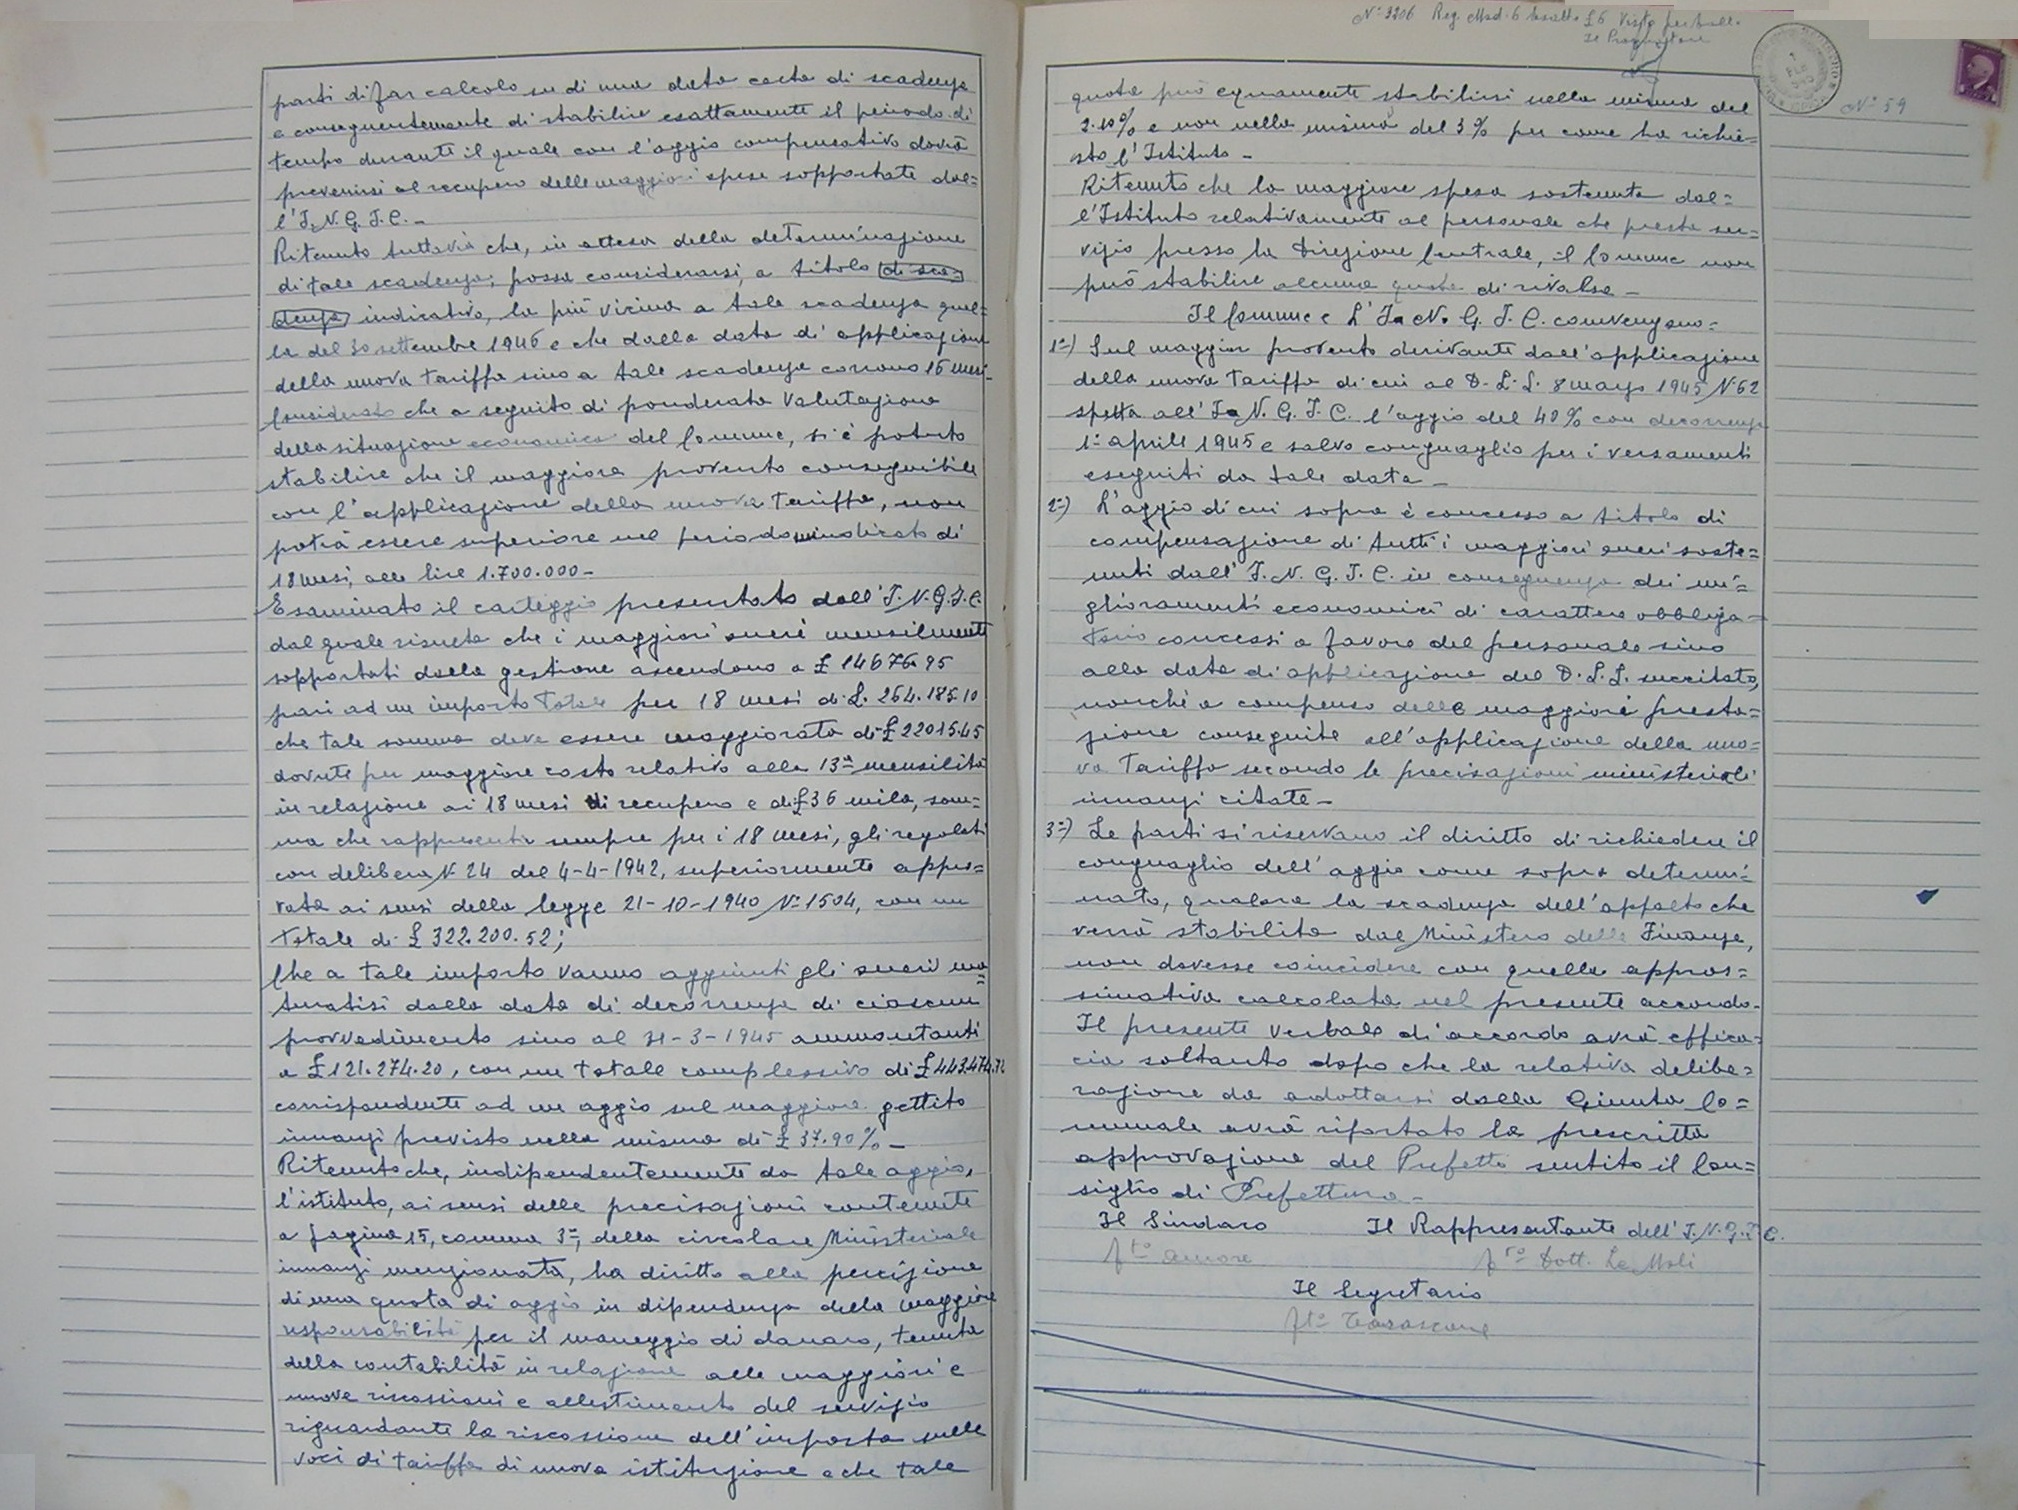 parti di far calcolo su di una data certa di scadenza
e conseguentemente di stabilire esattamente il periodo di
tempo durante il quale con l'aggio compensativo dovrà
prevenirsi al recupero delle maggiori spese sopportate dal=
l'I.N.G.I.C. -
Ritenuto tuttavia che, in attesa della determinazione
di tale scadenza, possa considerarsi, a titolo di sca=
denza indicativo, la più vicina a tale scadenza quel=
la del 30 settembre 1946 e che dalla data di applicazione
della nuova tariffa sino a tale scadenza corrono 18 mesi.
Considerato che a seguito di ponderata valutazione
della situazione economica del Comune, si è potuto
stabilire che il maggiore provento conseguibile
con l'applicazione della nuova tariffa, non
potrà essere superiore nel periodo indicato di
18 mesi, alle lire 1.700.000 -
Esaminato il carteggio presentato dall'I.N.G.I.C.
dal quale risulta che i maggiori oneri mensilmente
sopportati dalla gestione ascendono a £ 14676.95
pari ad un importo totale per 18 mesi di £. 264.185.10
che tale somma deve essere maggiorata di £ 22015.45
dovute per maggiore costo relativo alla 13ª mensilità
in relazione ai 18 mesi di recupero e di £ 36 mila, som=
ma che rappresenti sempre per i 18 mesi, gli regolati
con delibera N. 24 del 4-4-1942, superiormente appro=
vata ai sensi della legge 21-10-1940 N° 1504, con un
totale di £ 322.200.52;
Che a tale importo vanno aggiunti gli oneri ma=
turatisi dalla data di decorrenza di ciascun
provvedimento sino al 31-3-1945 ammontanti
a £ 121.274.20, con un totale complessivo di £ 443.474.72
corrispondente ad un aggio sul maggiore gettito
innanzi previsto nella misura di £ 37.90% -
Ritenuto che, indipendentemente da tale aggio,
l'istituto, ai sensi delle precisazioni contenute
a pagina 15, comma 3°, della circolare Ministeriale
innanzi menzionata, ha diritto alla percezione
di una quota di aggio in dipendenza della maggiore
responsabilità per il maneggio di danaro, tenuta
della contabilità in relazione alle maggiori e
nuove riscossioni e allestimento del servizio
riguardante la riscossione dell'imposta sulle
voci di tariffa di nuova istituzione e che tale
N° 3206 Reg. Mod. 6 £ 6 Visto per boll.
Il Procuratore
N° 59
quota può equamente stabilirsi nella misura del
2.10% e non nella misura del 3% per come ha richie=
sto l'Istituto -
Ritenuto che la maggiore spesa sostenuta dal=
l'Istituto relativamente al personale che presta ser=
vizio presso la Direzione Centrale, il Comune non
può stabilire alcuna quota di rivalsa -
Il Comune e l'I.N.G.I.C. convengono:
1°) Sul maggior provento derivante dall'applicazione
della nuova tariffa di cui al D.L.L. 8 marzo 1945 N. 62
spetta all'I.N.G.I.C. l'aggio del 40% con decorrenza
1° aprile 1945 e salvo conguaglio per i versamenti
eseguiti da tale data -
2°) L'aggio di cui sopra è concesso a titolo di
compensazione di tutti i maggiori oneri soste=
nuti dall'I.N.G.I.C. in conseguenza dei mi=
glioramenti economici di carattere obbliga=
torio concessi a favore del personale sino
alla data di applicazione del D.L.L. succitato,
nonchè a compenso delle maggiori presta=
zione conseguite all'applicazione della nuo=
va tariffa secondo le precisazioni ministeriali
innanzi citate -
3°) Le parti si riservano il diritto di richiedere il
conguaglio dell'aggio come sopra determi=
nato, qualora la scadenza dell'appalto che
verrà stabilita dal Ministero delle Finanze,
non dovesse coincidere con quella appros=
simativa calcolata nel presente accordo.
Il presente verbale di accordo avrà effica=
cia soltanto dopo che la relativa delibe=
razione da adottarsi dalla Giunta Co=
munale avrà riportato la prescritta
approvazione del Prefetto sentito il Con=
siglio di Prefettura -
Il Sindaco Il Rappresentante dell'I.N.G.I.C.
f.to Amore f.to Dott. Le Moli
Il Segretario
f.to Tarascone